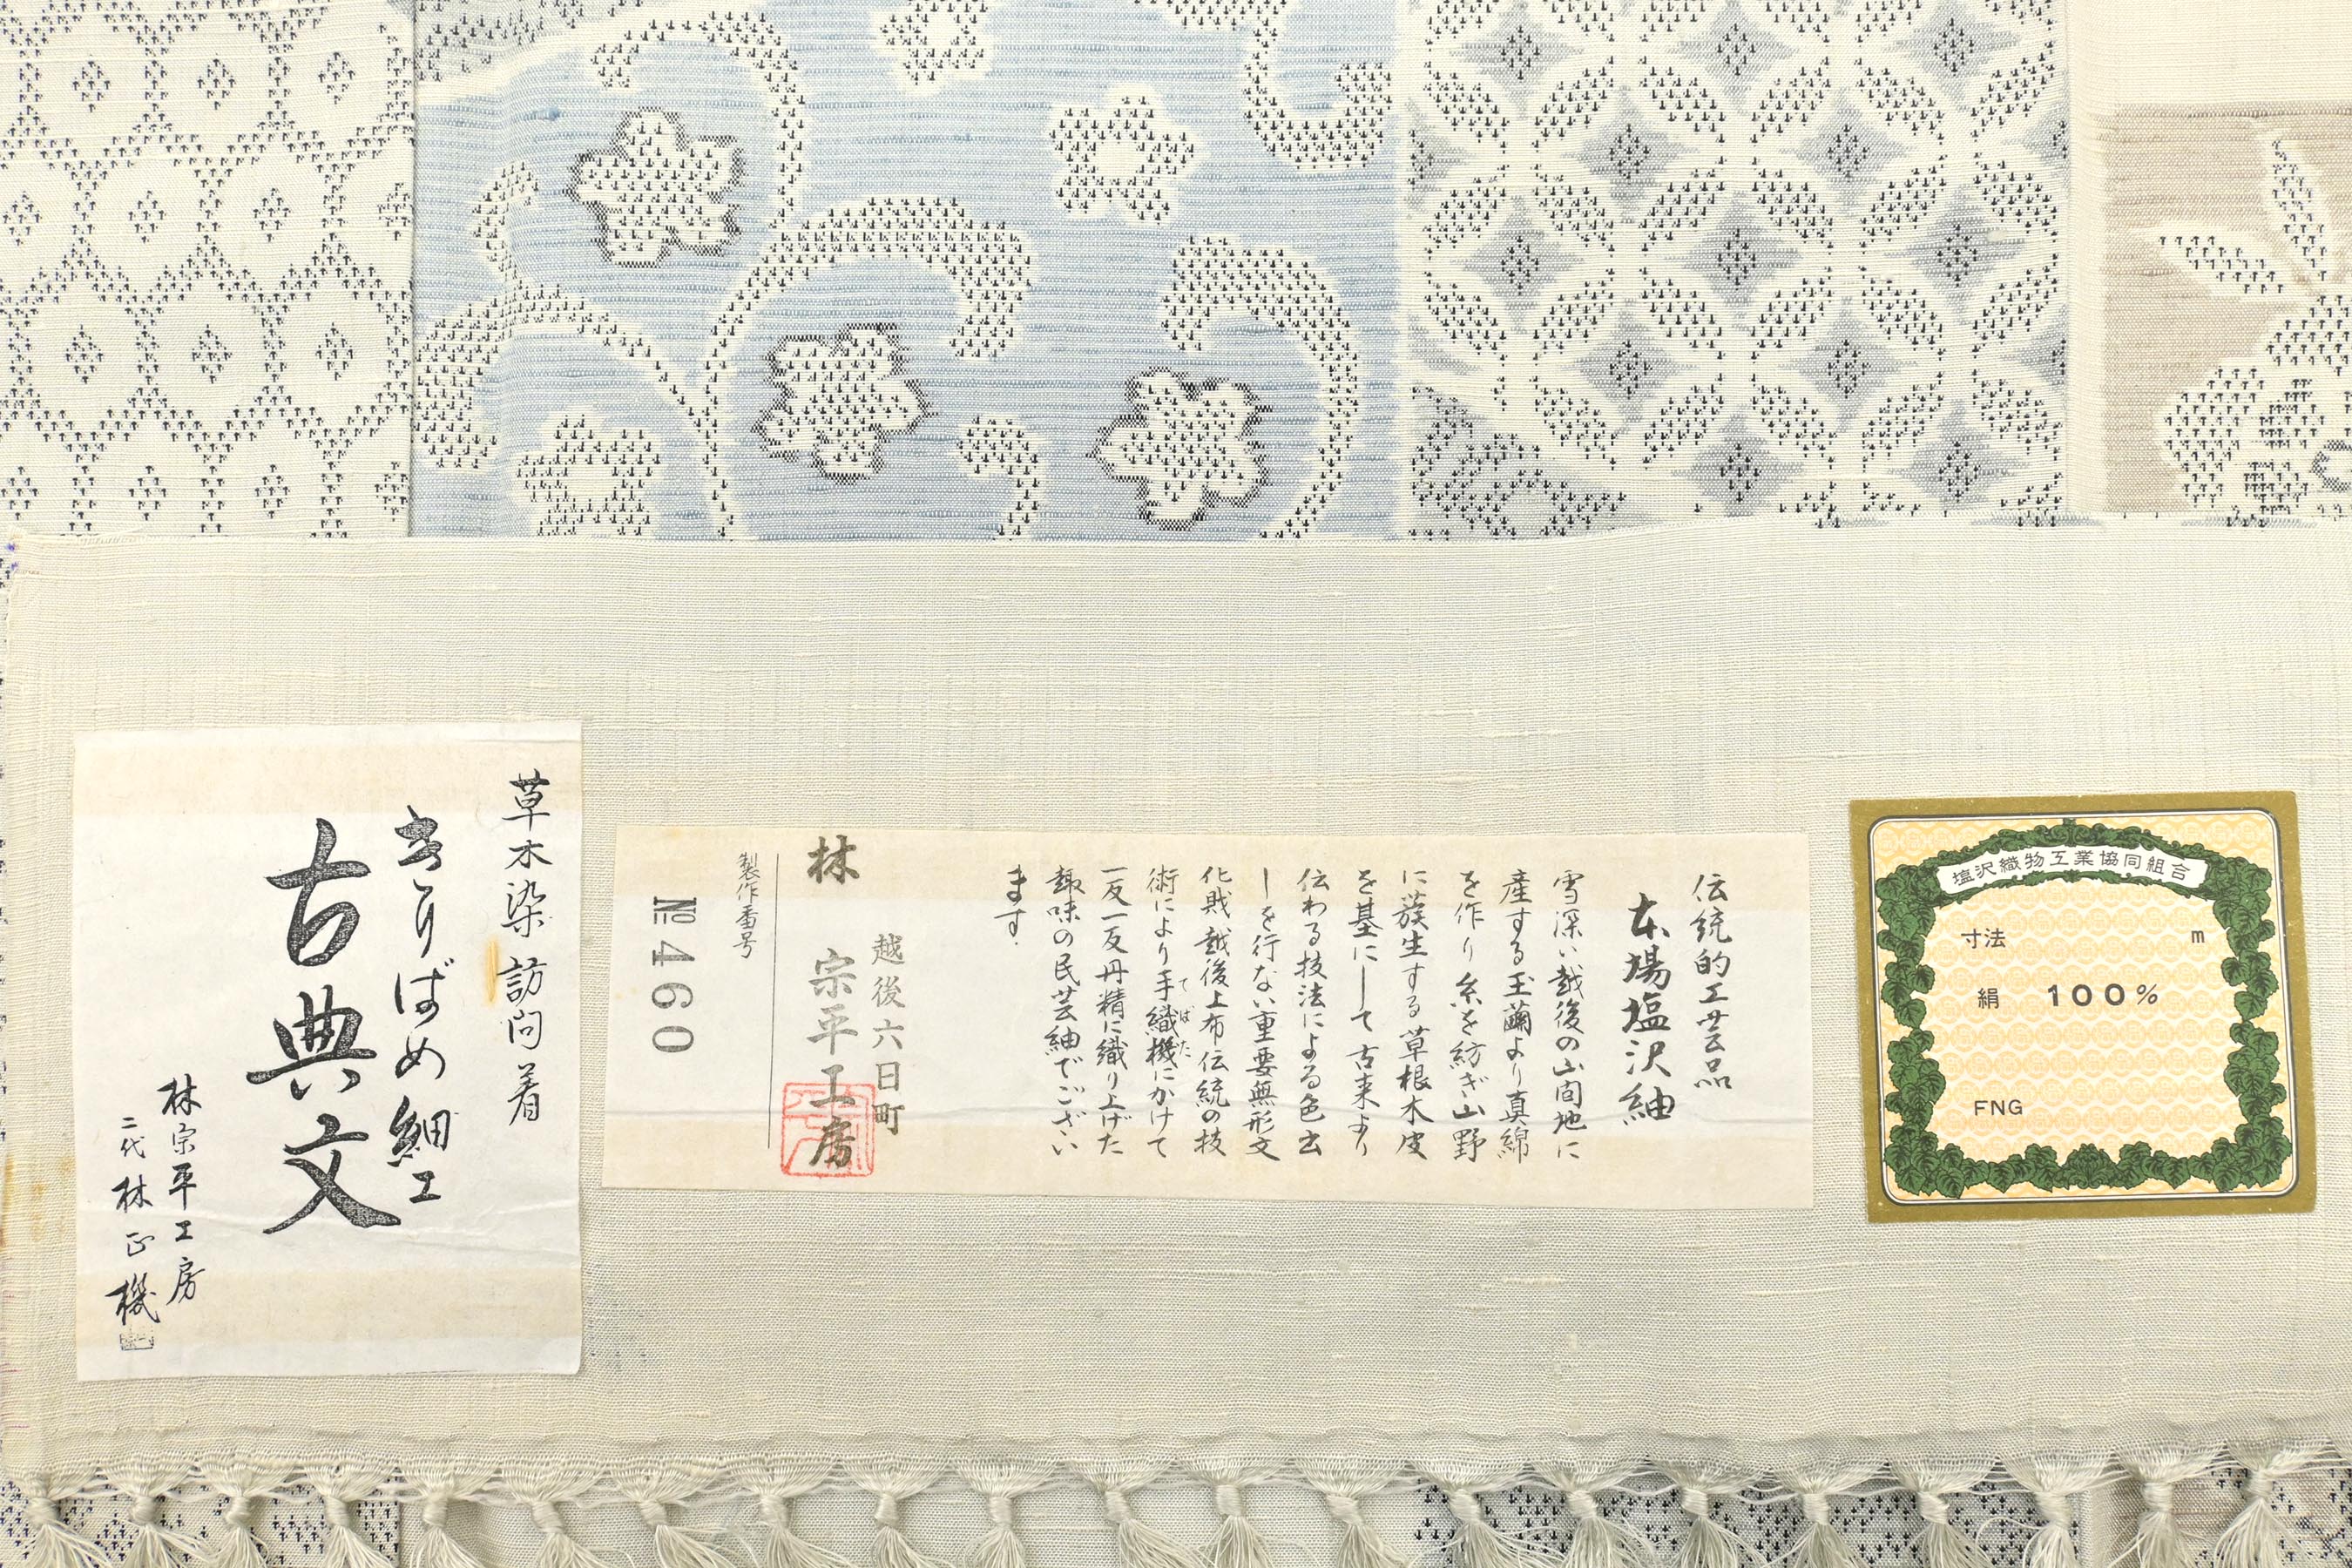 草木染訪問着
きりばめ細工
古典文
林宗平工房
二代林正機
伝統的工芸品
本場塩沢紬
雪深い越後の山間地に
産する玉繭より真綿
を作り糸を紡ぎ山野
に簇生する草根木皮
を基にして古来より
伝わる技法による色出
しを行ない重要無形文
化財越後上布伝統の技
術により手織機にかけて
てばた
一反一反丹精に織り上げた
趣味の民芸紬でござい
ます.
越後六日町
林 宗平工房
製作番号
№460
塩沢織物工業協同組合
寸法 m
絹 100%
FNG